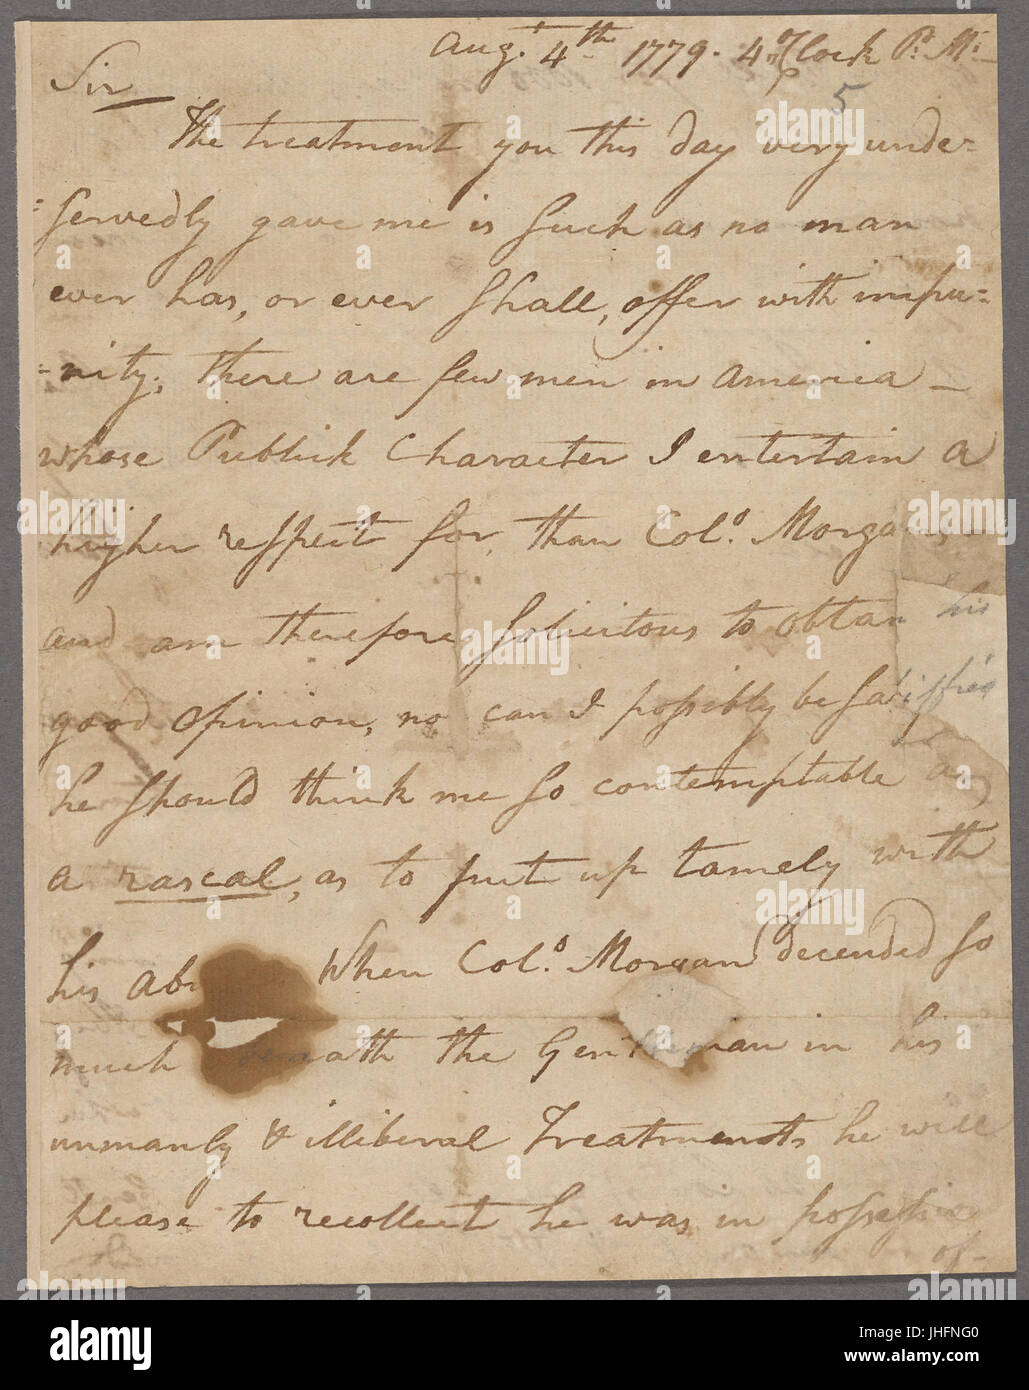 Aug.t 4th 1779. 4 o'Clock P. M.
5
Sir
The treatment you this day very unde=
=servedly gave me is such as no man
ever has, or ever shall, offer with impu=
=nity; there are few men in America
whose Publick Character I entertain a
higher respect for, than Colo. Morgan's
and am therefore solicitous to obtain his
good opinion, no can I possibly be satisfied
he should think me so contemptable
a rascal, as to put up tamely with
his When Colo. Morgan decended so
much beneath the Gentleman in his
unmanly & illiberal Treatments he will
please to recollect he was in possession
of
alamy stock photo
JHFNG0
www.alamy.com